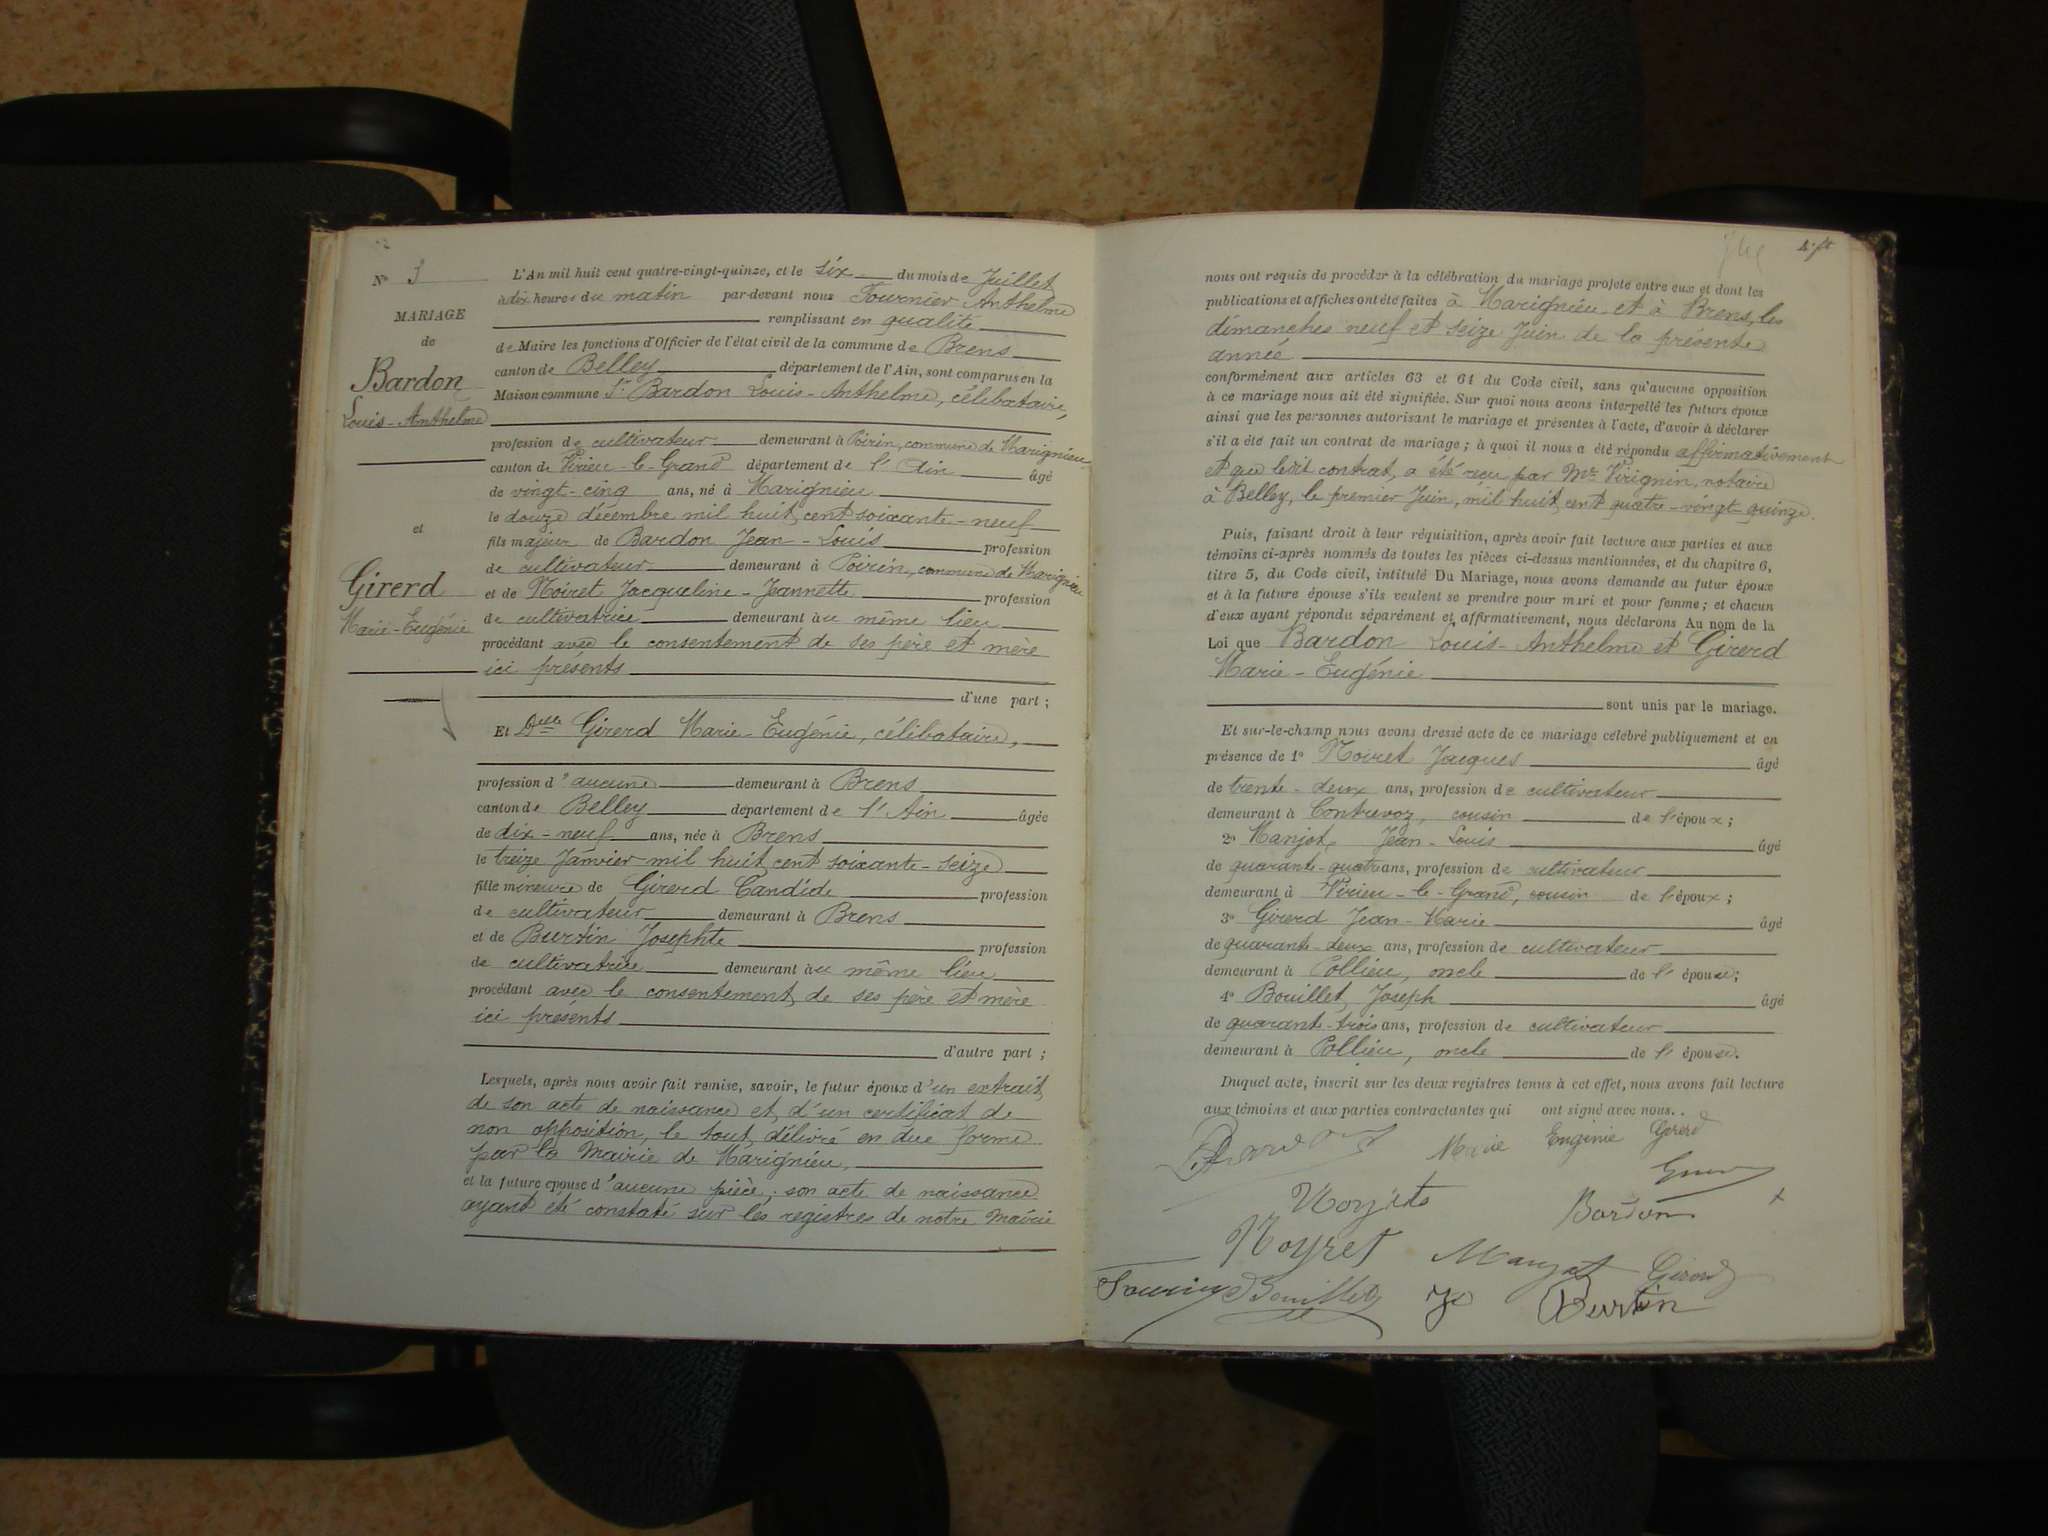 Nº 3
MARIAGE
de
Bardon
Louis-Anthelme
et
Girerd
Marie-Eugénie
L'An mil huit cent quatre-vingt-quinze, et le six du mois de Juillet
à dix heures du matin par-devant nous Fournier Anthelme
remplissant en qualité
de Maire les fonctions d'Officier de l'état civil de la commune de Brens
canton de Belley département de l'Ain, sont comparus en la
Maison commune Sr Bardon Louis-Anthelme, célibataire,
profession de cultivateur demeurant à Poirin, commune de Marignieu
canton de Virieu-le-Grand département de l'Ain âgé
de vingt-cinq ans, né à Marignieu
le douze décembre mil huit cent soixante-neuf
fils majeur de Bardon Jean-Louis profession
de cultivateur demeurant à Poirin, commune de Marignieu
et de Noiret Jacqueline-Jeannette profession
de cultivatrice demeurant au même lieu
procédant avec le consentement de ses père et mère
ici présents
d'une part ;
Et Delle Girerd Marie-Eugénie, célibataire,
profession d'aucune demeurant à Brens
canton de Belley département de l'Ain âgée
de dix-neuf ans, née à Brens
le treize Janvier mil huit cent soixante-seize
fille mineure de Girerd Candide profession
de cultivateur demeurant à Brens
et de Burtin Josephte profession
de cultivatrice demeurant au même lieu
procédant avec le consentement de ses père et mère
ici présents
d'autre part ;
Lesquels, après nous avoir fait remise, savoir, le futur époux d'un extrait
de son acte de naissance et d'un certificat de
non opposition, le tout délivré en due forme
par la Mairie de Marignieu,
et la future épouse d'aucune pièce, son acte de naissance
ayant été constaté sur les registres de notre Mairie
nous ont requis de procéder à la célébration du mariage projeté entre eux et dont les
publications et affiches ont été faites à Marignieu et à Brens, les
dimanches neuf et seize Juin de la présente
année
conformément aux articles 63 et 64 du Code civil, sans qu'aucune opposition
à ce mariage nous ait été signifiée. Sur quoi nous avons interpellé les futurs époux
ainsi que les personnes autorisant le mariage et présentes à l'acte, d'avoir à déclarer
s'il a été fait un contrat de mariage ; à quoi il nous a été répondu affirmativement
et que ledit contrat, a été reçu par Me Virignin, notaire
à Belley, le premier Juin, mil huit cent quatre-vingt-quinze.
Puis, faisant droit à leur réquisition, après avoir fait lecture aux parties et aux
témoins ci-après nommés de toutes les pièces ci-dessus mentionnées, et du chapitre 6,
titre 5, du Code civil, intitulé Du Mariage, nous avons demandé au futur époux
et à la future épouse s'ils veulent se prendre pour mari et pour femme ; et chacun
d'eux ayant répondu séparément et affirmativement, nous déclarons Au nom de la
Loi que Bardon Louis-Anthelme et Girerd
Marie-Eugénie
sont unis par le mariage.
Et sur-le-champ nous avons dressé acte de ce mariage célébré publiquement et en
présence de 1º Noiret Jacques âgé
de trente-deux ans, profession de cultivateur
demeurant à Contrevoz, cousin de l'époux ;
2º Manjot, Jean-Louis âgé
de quarante-quatre ans, profession de cultivateur
demeurant à Virieu-le-Grand, cousin de l'époux ;
3º Girerd Jean-Marie âgé
de quarante-deux ans, profession de cultivateur
demeurant à Pollieu, oncle de l'épouse ;
4º Bouillet Joseph âgé
de quarant-trois ans, profession de cultivateur
demeurant à Pollieu, oncle de l'épouse.
Duquel acte, inscrit sur les deux registres tenus à cet effet, nous avons fait lecture
aux témoins et aux parties contractantes qui ont signé avec nous..
Marie Eugénie Girerd
Bardon
Noyret
Girerd
Bouillet
Burtin